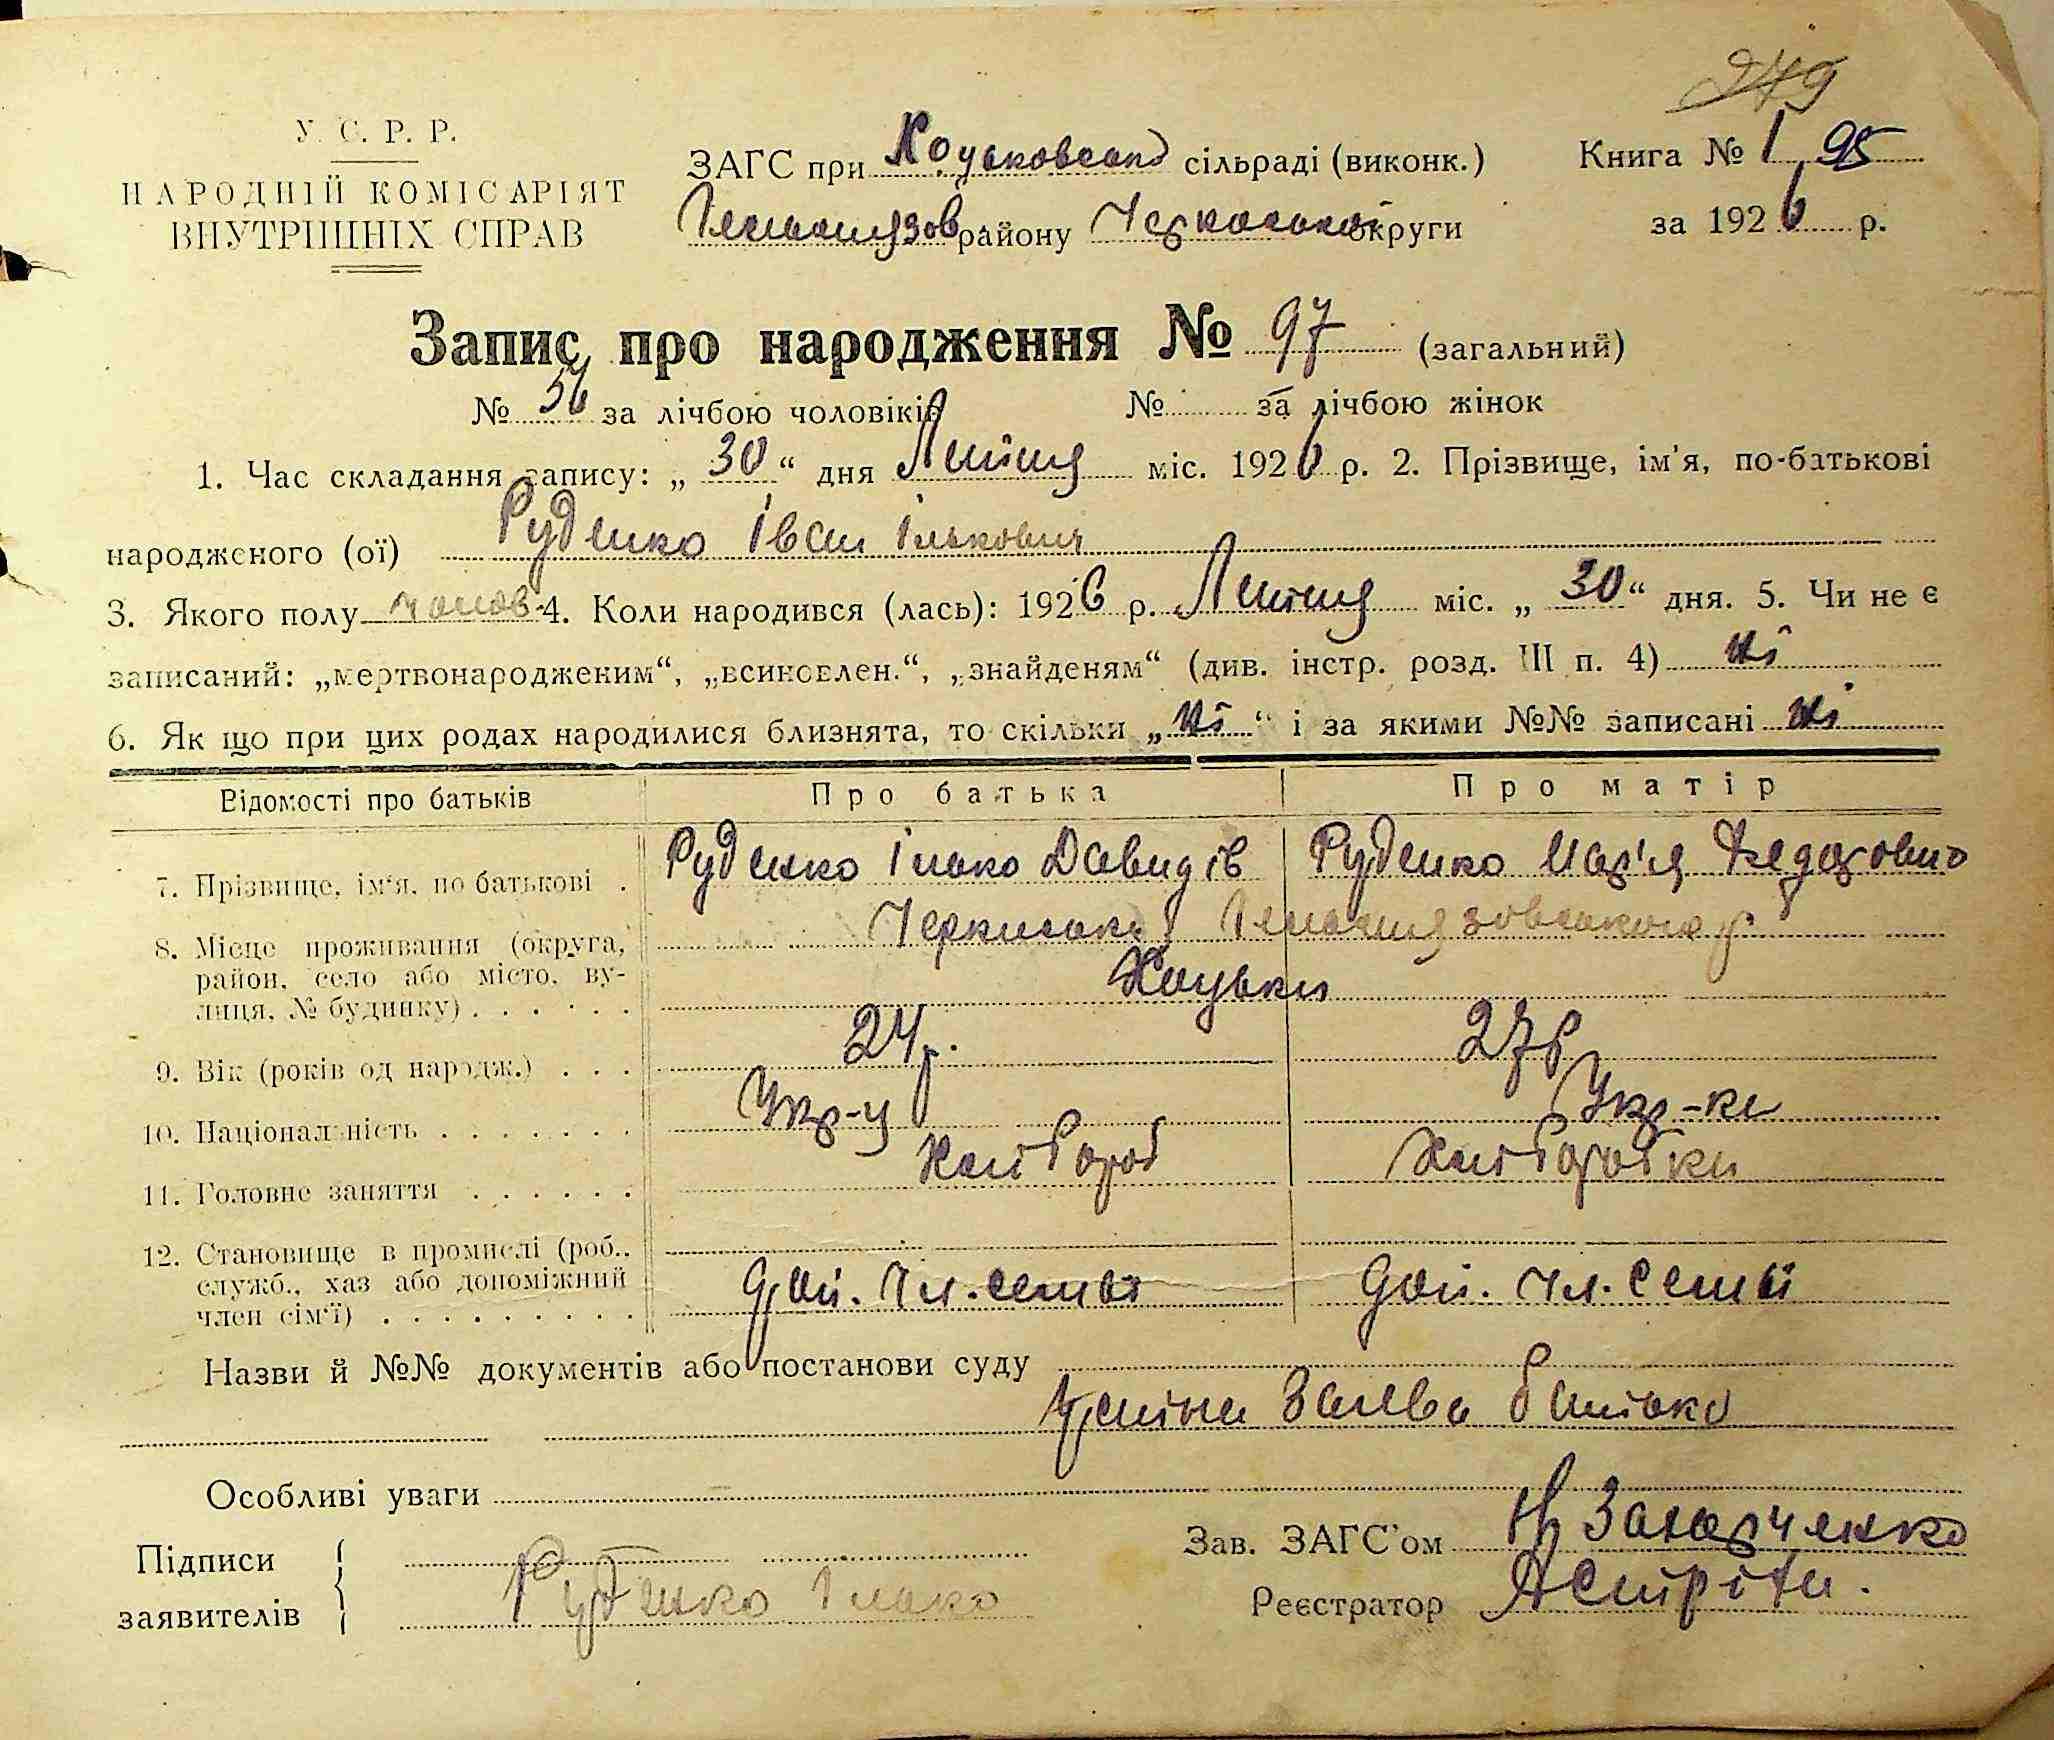 249
У. С. Р. Р.
НАРОДНІЙ КОМІСАРІЯТ
ВНУТРІШНІХ СПРАВ
ЗАГС при Хоцьковській сільраді (виконк.)
Книга № 1 95
Гельмязов району Черкаської округи
за 1926 р.
Запис про народження № 97 (загальний)
№ 56 за лічбою чоловіків № — за лічбою жінок
1. Час складання запису: „ 30 “ дня Липня міс. 1926 р. 2. Прізвище, ім'я, по-батькові
народженого (ої) Руденко Іван Ількович
3. Якого полу чолов. 4. Коли народився (лась): 1926 р. Липня міс. „ 30 “ дня. 5. Чи не є
записаний: „мертвонародженим“, „всиновлен.“, „знайденям“ (див. інстр. розд. III п. 4) ні
6. Як що при цих родах народилися близнята, то скільки „ ні “ і за якими №№ записані ні
Відомості про батьків Про батька Про матір
7. Прізвище, ім'я, по батькові . Руденко Ілько Давидів Руденко Мар'я Федоровна
8. Місце проживання (округа, Черкаської Гельмязовського р.
район, село або місто, ву-
лиця, № будинку) . . . . . . Хоцьки
9. Вік (років од народж.) . . . 24 р. 27 р
10. Національність . . . . . . . Укр-ц Укр-ка
11. Головне заняття . . . . . . Хлібороб Хліборобка
12. Становище в промислі (роб.,
служб., хаз або допоміжний
член сім'ї) . . . . . . . . . . Доп. Чл. семьї Доп. Чл. Семьї
Назви й №№ документів або постанови суду
Заява батька
Особливі уваги
Підписи
заявителів
Руденко Ілько
Зав. ЗАГС'ом Захарченко
Реєстратор